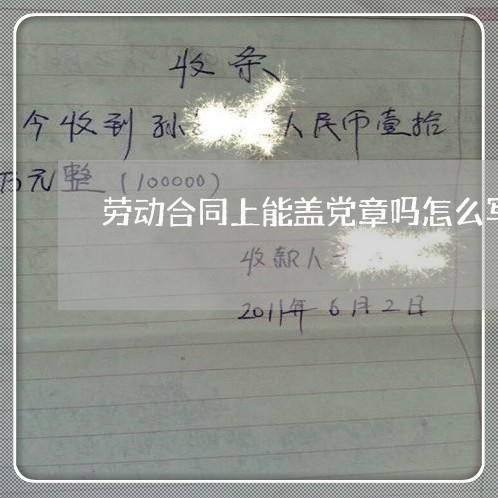 收条
今收到孙 人民币壹拾
万元整(100000)
劳动合同上能盖党章吗怎么写
收款人
2011年6月2日